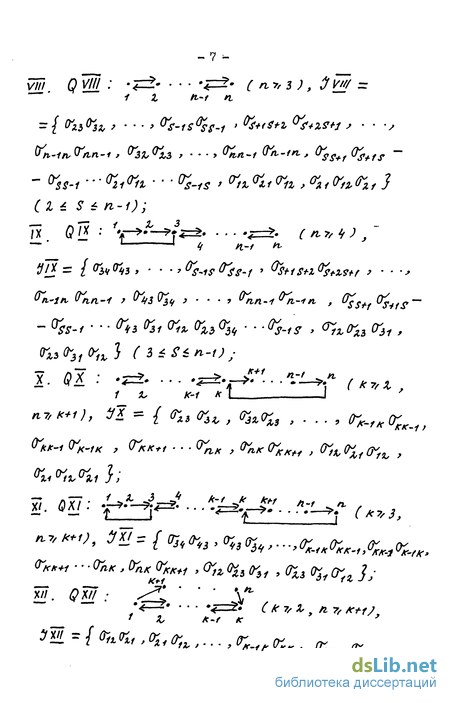 - 7 -
VIII. QVIII: (n⩾3), JVIII =
1 2 n-1 n
={σ23σ32, ..., σs-1sσss-1, σs+1s+2σs+2s+1, ...,
σn-1nσnn-1, σ32σ23, ..., σnn-1σn-1n, σss+1σs+1s −
− σss-1 ... σ21σ12 ... σs-1s, σ12σ21σ12, σ21σ12σ21}
(2 ≤ s ≤ n-1);
IX. QIX: 1 2 3 (n⩾4),
4 n-1 n
JIX = {σ34σ43, ..., σs-1sσss-1, σs+1s+2σs+2s+1, ...,
σn-1nσnn-1, σ43σ34, ..., σnn-1σn-1n, σss+1σs+1s −
− σss-1 ... σ43σ31σ12σ23σ34 ... σs-1s, σ12σ23σ31,
σ23σ31σ12} (3 ≤ s ≤ n-1);
X. QX: k+1 n-1 n (k⩾2,
1 2 k-1 k
n⩾k+1), JX = {σ23σ32, σ32σ23, ..., σk-1kσkk-1,
σkk-1σk-1k, σkk+1 ... σnk, σnkσkk+1, σ12σ21σ12,
σ21σ12σ21};
XI. QXI: 1 2 3 4 k-1 k k+1 n-1 n (k⩾3,
n⩾k+1), JXI = {σ34σ43, σ43σ34, ..., σk-1kσkk-1, σkk-1σk-1k,
σkk+1 ... σnk, σnkσkk+1, σ12σ23σ31, σ23σ31σ12};
XII. QXII: k+1 n (k⩾2, n⩾k+1),
1 2 k-1 k
JXII = {σ12σ21, σ21σ12, ...,
dsLib.net
библиотека диссертаций